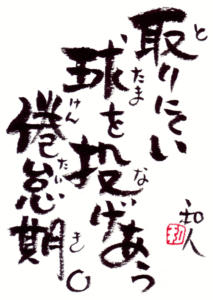 と
取りにくい
たま な
球を投げあう
けん たい き
倦怠期。
和人